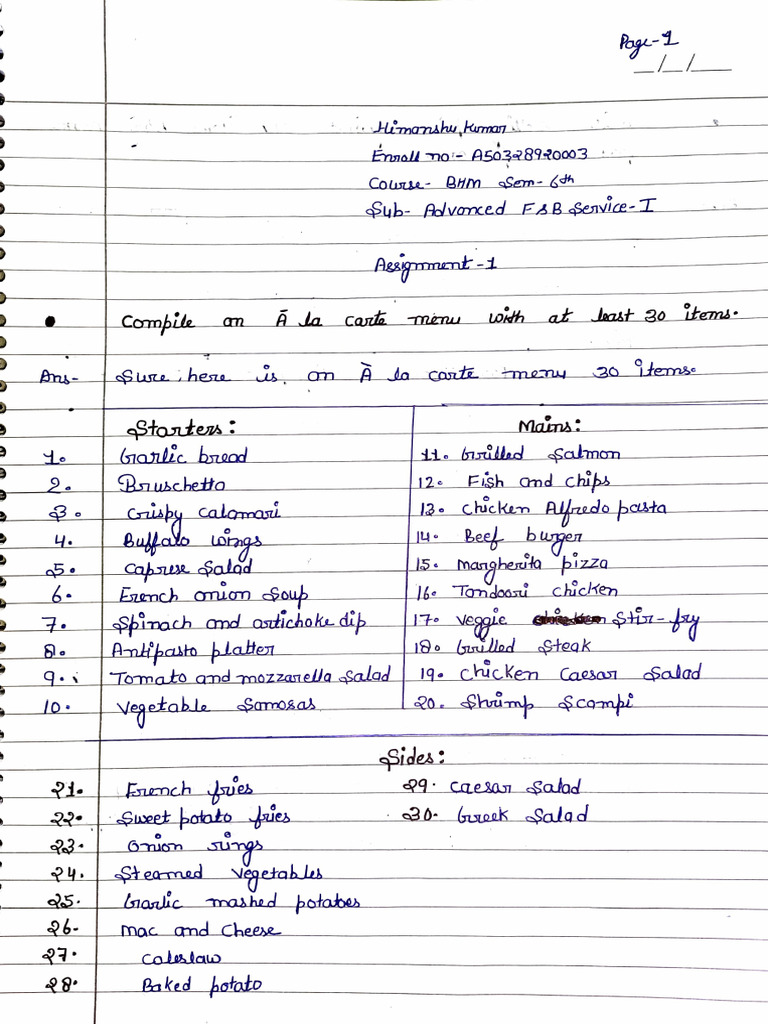 Page-1
__/__/____
Himanshu Kumar
Enroll no:- A50328920003
Course- BHM Sem- 6th
Sub- Advanced F&B Service-I
Assignment-1
• Compile an À la carte menu with at least 30 items.
Ans- Sure, here is an À la carte menu 30 items.
Starters:
1. Garlic bread
2. Bruschetta
3. Crispy calamari
4. Buffalo wings
5. Caprese Salad
6. French onion Soup
7. Spinach and artichoke dip
8. Antipasto platter
9. Tomato and mozzarella Salad
10. Vegetable Samosas
Mains:
11. Grilled Salmon
12. Fish and chips
13. Chicken Alfredo pasta
14. Beef burger
15. Margherita pizza
16. Tandoori chicken
17. Veggie Stir-fry
18. Grilled Steak
19. Chicken Caesar Salad
20. Shrimp Scampi
Sides:
21. French fries
22. Sweet potato fries
23. Onion rings
24. Steamed vegetables
25. Garlic mashed potatoes
26. Mac and cheese
27. Coleslaw
28. Baked potato
29. Caesar Salad
30. Greek Salad